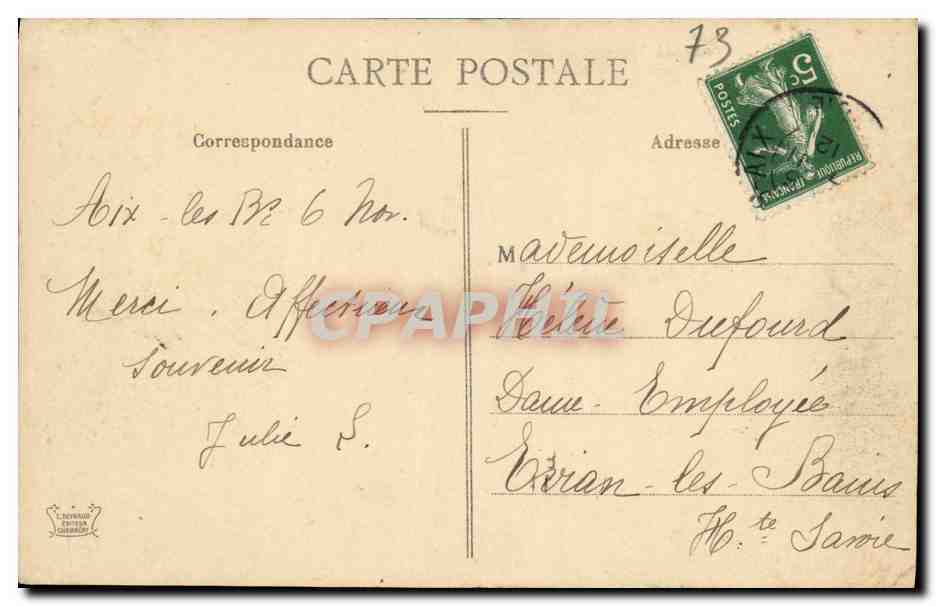 73
CARTE POSTALE
Correspondance
Adresse
5c
POSTES
REPUBLIQUE FRANÇAISE
AIX
12
Aix-les-Bs 6 Nov.
Merci. Affectueux
souvenir
Julie S.
Mademoiselle
Hélène Dufourd
Dame-Employée
Evian-les-Bains
Hte Savoie
CPAPHIL
L. REYNAUD
EDITEUR
CHAMBERY